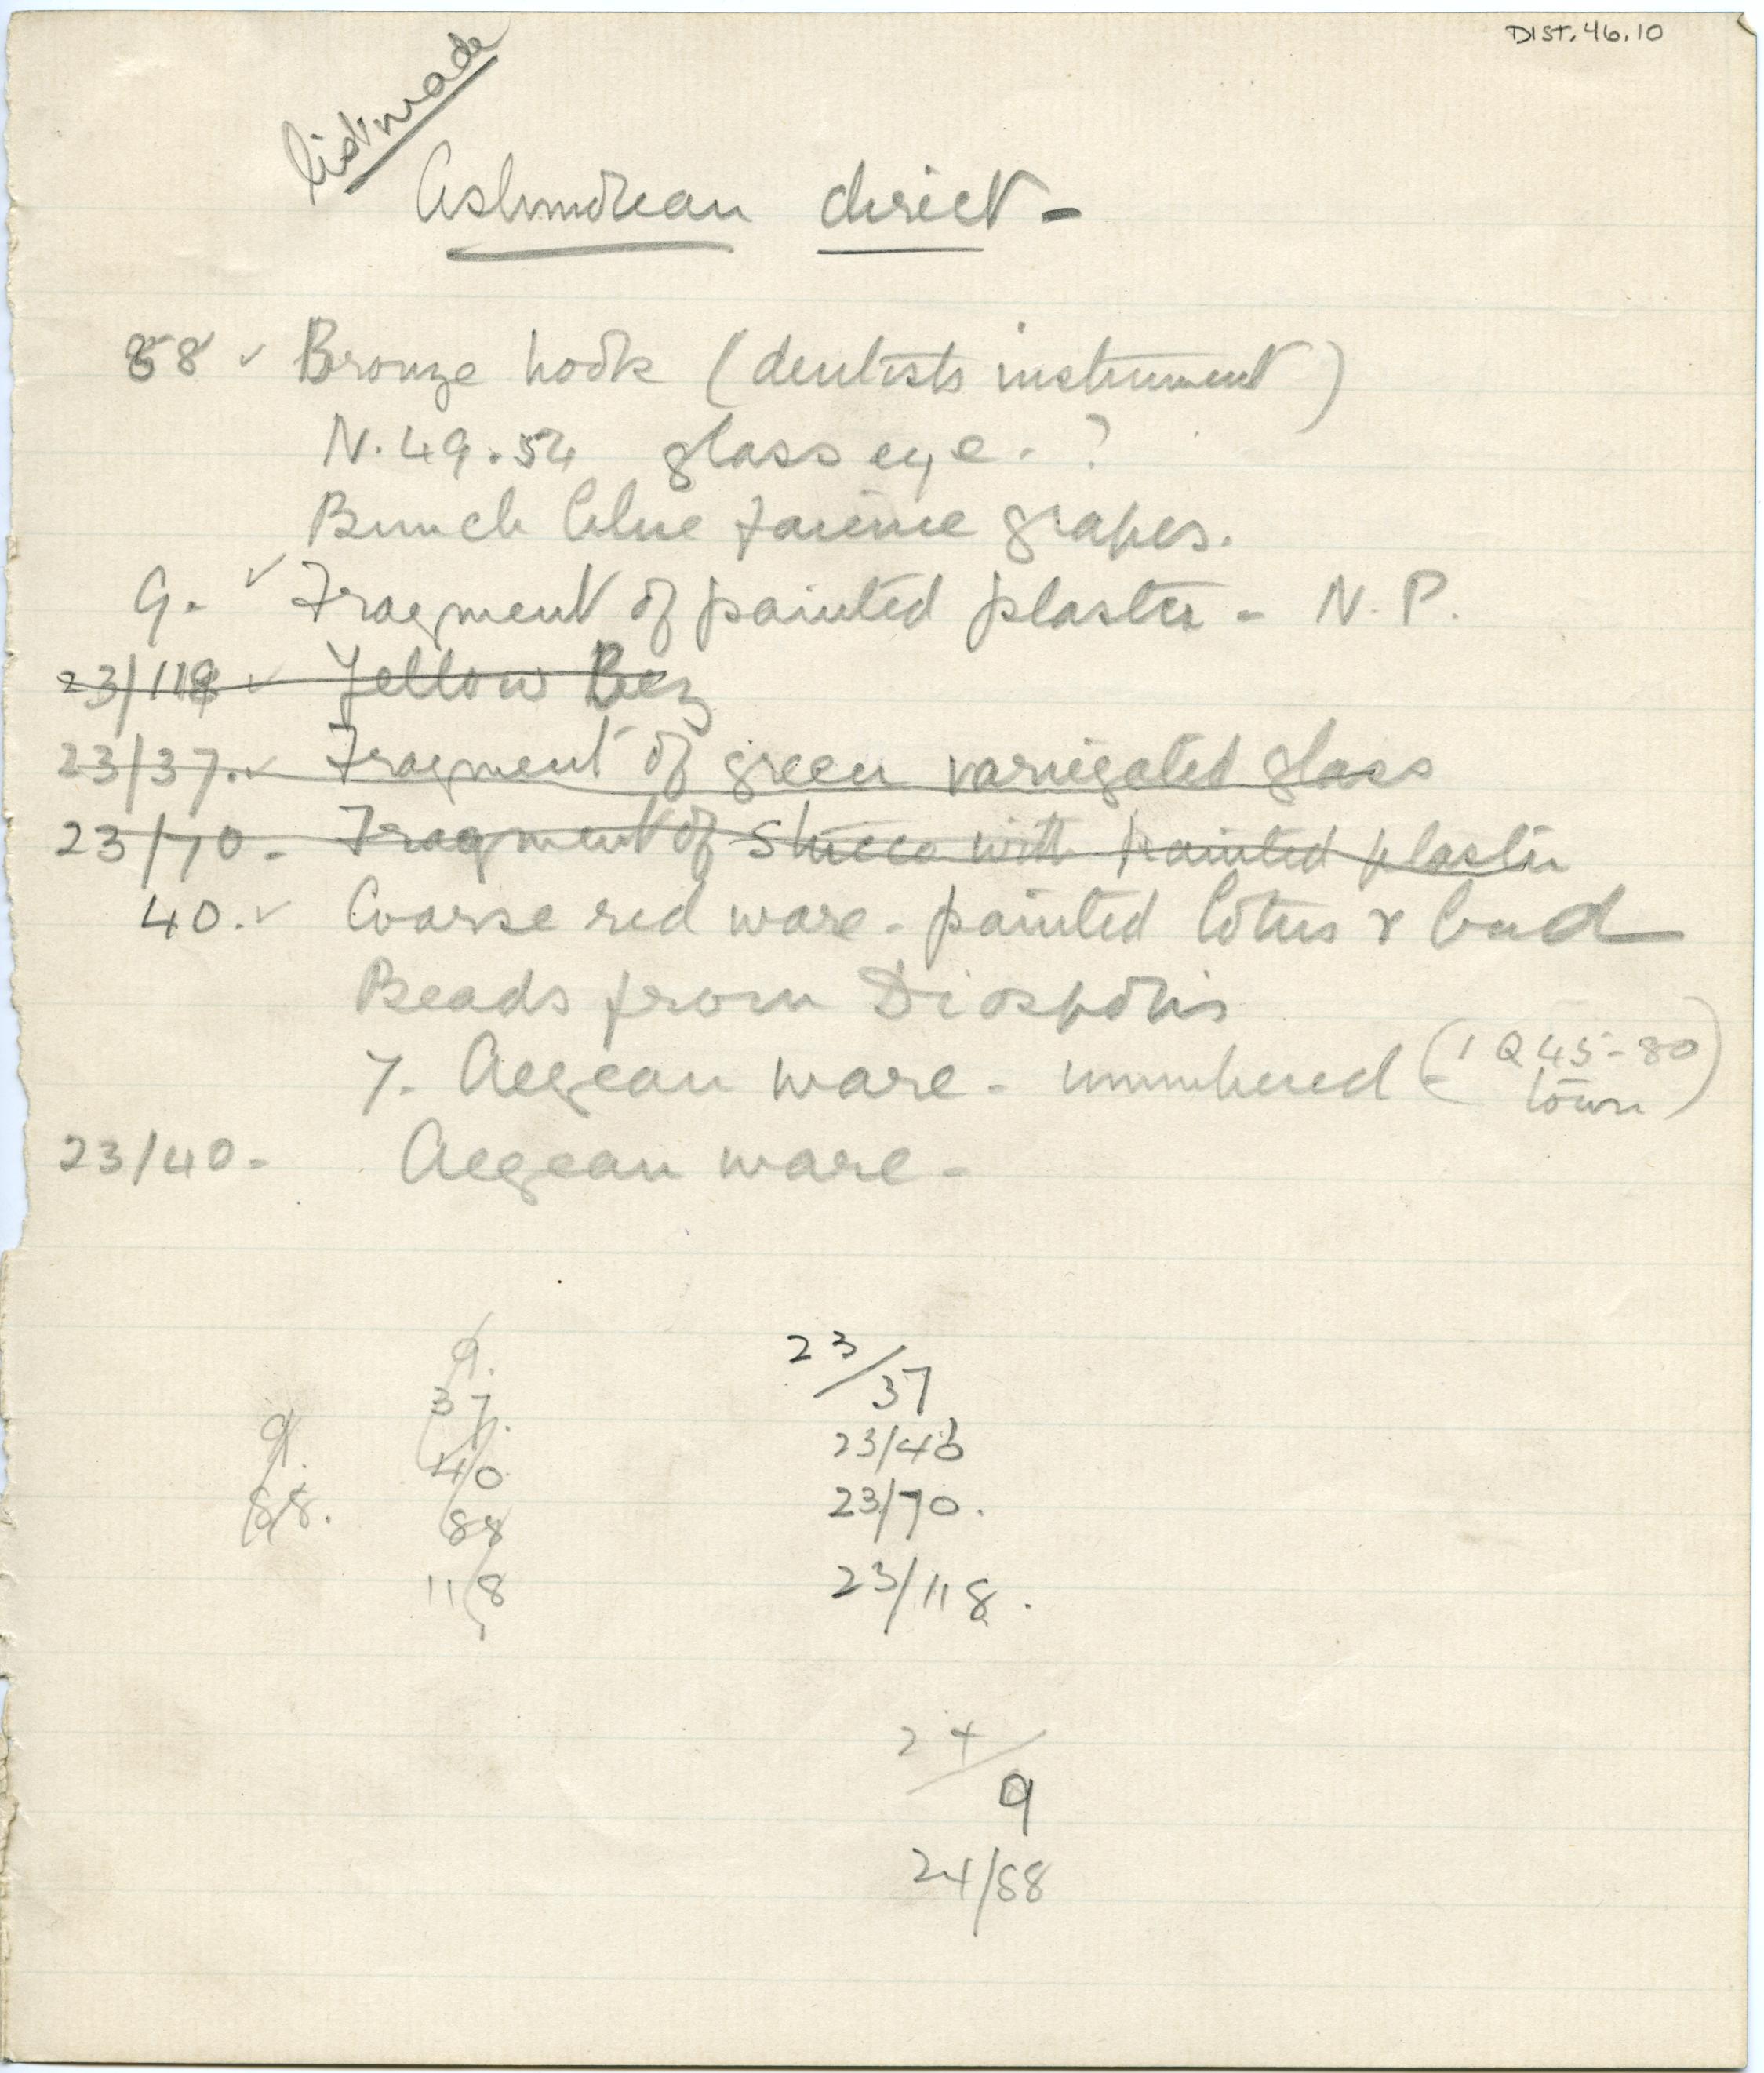 DIST.46.10
list made
Ashmolean direct -
88 ✓ Bronze hook (dentists instrument)
N.49.54 glass eye. ?
Bunch blue faience grapes.
9. ✓ Fragment of painted plaster - N.P.
23/118 ✓ Yellow Bez
23/37. ✓ Fragment of green variegated glass
23/70 - Fragment of Stucco with painted plaster
40. ✓ Coarse red ware - painted lotus & bud
Beads from Diospolis
7. Aegean ware - unnumbered (1 Q 45-80
town)
23/40 - Aegean ware -
9.
37.
40
88
118
9.
88.
23/37
23/40
23/70.
23/118.
24/9
24/88